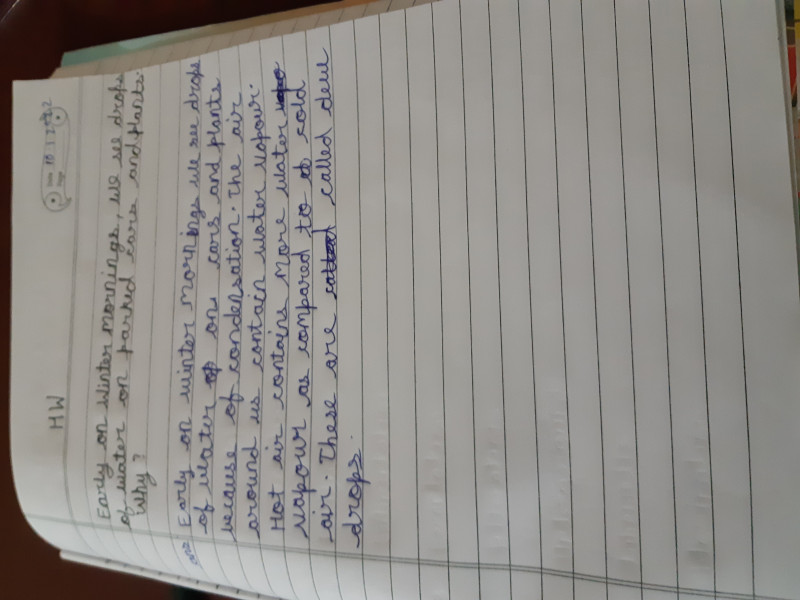 HW
Early on Winter mornings, we see drops
of water on parked cars and plants.
Why?
ans. Early on winter mornings we see drops
of water on cars and plants
because of condensation. The air
around us contain water vapour.
Hot air contains more water
vapour as compared to cold
air. These are called dew
drops.